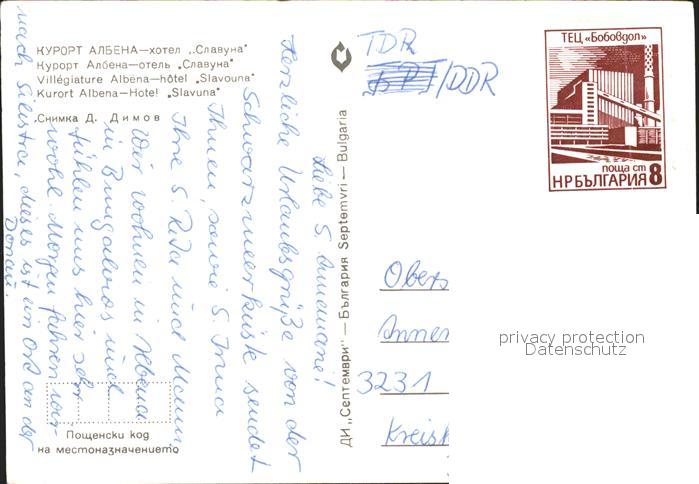 КУРОРТ АЛБЕНА—хотел „Славуна“
Курорт Албена—отель „Славуна“
Villégiature Albena—hôtel "Slavouna"
Kurort Albena—Hotel „Slavuna“
Снимка Д. Димов
Liebe S. Annemarie!
Herzliche Urlaubsgrüße von der
Schwarzmeerküste sendet
Ihnen, sowie S. Irma
Ihre S. Rita und Mann
Wir wohnen in Albena
in Bungalows und
fühlen uns hier sehr
wohl. Morgen fahren wir
nach Silistra, dieses ist ein Ort an der
Donau.
Пощенски код
на местоназначението
ДИ „Септември“ — България Septemvri — Bulgaria
TDR
/DDR
ТЕЦ «Бобовдол»
поща ст
НРБЪЛГАРИЯ 8
Obers
Annem
3231
Kreisk
privacy protection
Datenschutz